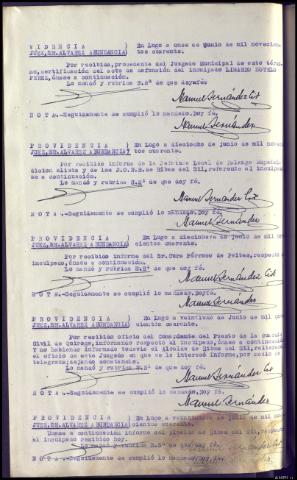 VIDENCIA ) En Lugo a once de junio de novecien-
JUEZ.SR.ALVAREZ ABUNDANCIA) tos cuarenta.
Por recibida, procedente del Juzgado Municipal de este térmi-
no, certificación del acta de defunción del inculpado
PEREZ, únase a continuación.
Lo mandó y rubrica S.Sª de que doy fé.
Manuel Fernández
NOTA.-Seguidamente se cumplió lo mandado. Doy fé.
Manuel Fernández
PROVIDENCIA ) En Lugo a dieciocho de junio de mil novecien-
JUEZ.SR.ALVAREZ ABUNDANCIA) tos cuarenta.
Por recibido informe de la Jefatura Local de Falange Española
dicion alista y de las J.O.N.S. de Ribas del Sil, referente al
se a continuación.
Lo mandó y rubrica S.Sª de que doy fé.
Manuel Fernández
NOTA.-Seguidamente se cumplió lo mandado, doy fé.
Manuel Fernández
PROVIDENCIA ) En Lugo a diecinueve de junio de mil
JUEZ.SR.ALVAREZ ABUNDANCIA) cientos cuarenta.
Por recibido informe del Sr. Cura Párroco de
inculpado, únase a continuación.
Lo mandó y rubrica S.Sª de que doy fé.
Manuel Fernández
NOTA.-Seguidamente se cumplió lo mandado. Doy fé.
Manuel Fernández
PROVIDENCIA ) En Lugo a veintiuno de Junio de mil
JUEZ.SR.ALVAREZ ABUNDANCIA) cientos cuarenta.
Por recibido oficio del Comandante del Puesto de la Guardia
Civil de Quiroga, informando respecto al inculpado, únase a continuación
Y no habiendo informado todavía el Alcalde de Ribas del Sil,
el oficio de este Juzgado en que se le interesó informe, por medio de
telegrama; únase acreditando.
Lo mandó y rubrica S.Sª de que doy fé.
Manuel Fernández
NOTA.-Seguidamente se cumplió lo mandado. Doy fé.
Manuel Fernández
PROVIDENCIA ) En Lugo a de junio de mil
JUEZ.SR.ALVAREZ ABUNDANCIA) cientos cuarenta.
Únase a continuación informe del Alcalde de Ribas del Sil,
al inculpado recibido hoy.
Lo mandó y rubrica S.Sª de que doy fé.
NOTA.-Seguidamente se cumplió lo mandado.